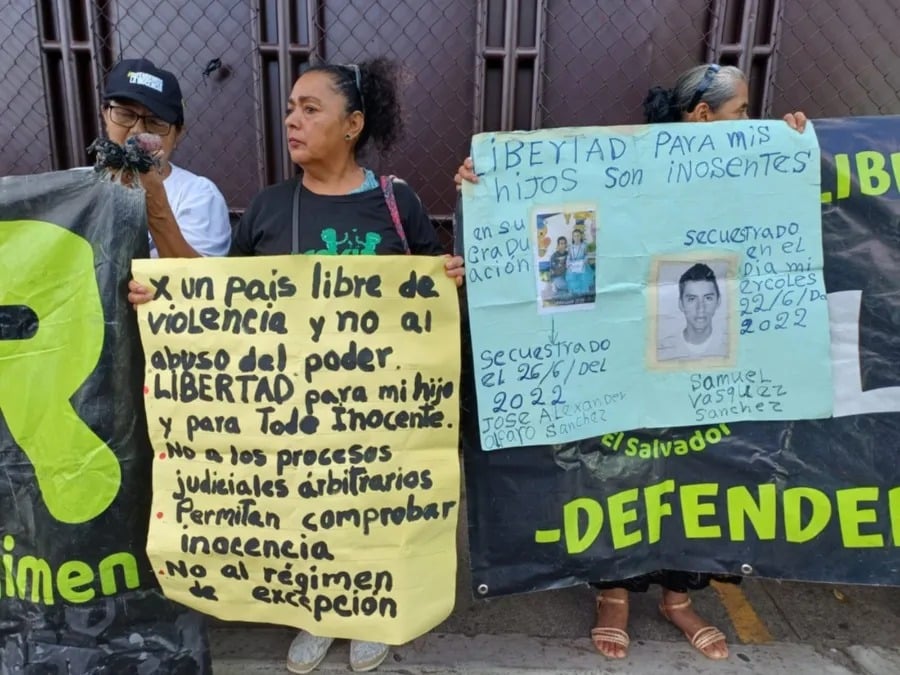 X un país libre de
violencia y no al
abuso del poder.
• LIBERTAD para mi hijo
y para Todo Inocente.
• No a los procesos
judiciales arbitrarios
• Permitan comprobar
inocencia
• No al régimen
de excepción
LIBERTAD PARA MIS
HIJOS SON INOSENTES
en su
GRADU
ACIÓN
SECUESTRADO
EL 26/6/DEL
2022
JOSE ALEXANDER
OLFARO SANCHEZ
SECUESTRADO
en el
DIA mi
ercoles
22/6/Del
2022
Samuel
Vasquez
Sanchez
R
imen
LIBE
L
El Salvador
-DEFENDER